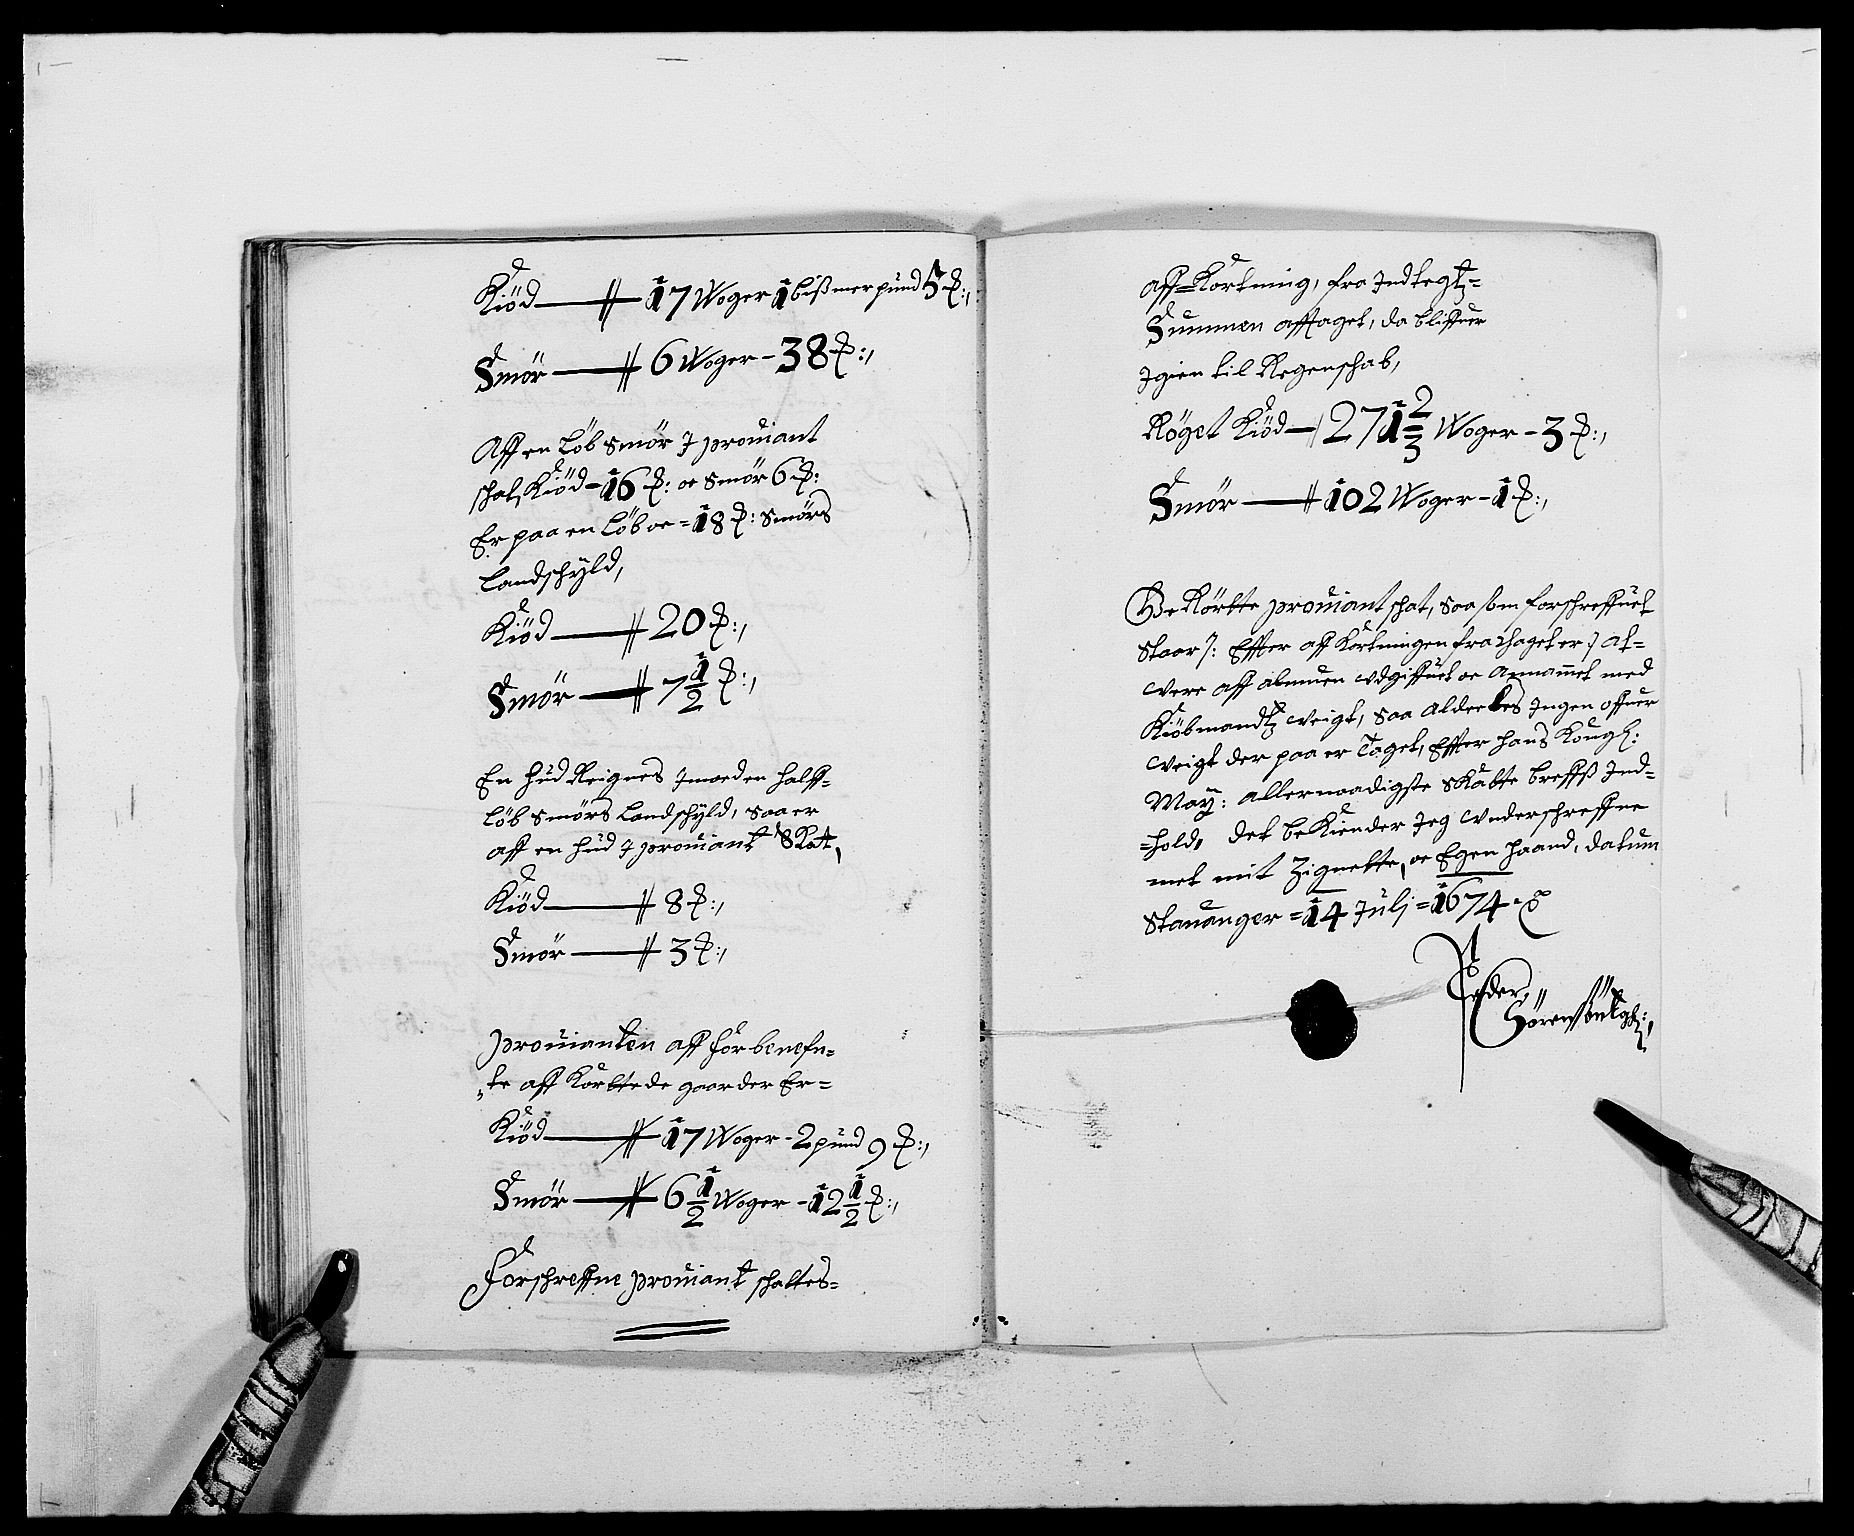 Kiöd — 17 Woger 1 bißmerpund 5 ℔:,
Smör — 6 Woger - 38 ℔:,
Aff en Löb Smör J prouiant
schat, Kiöd - 16 ℔: oc Smör 6 ℔:
Er paa en Löb oc = 18 ℔: Smörs
Landschÿld,
Kiöd — 20 ℔:,
Smör — 7 1/2 ℔:,
En Hud Reignes Jmod en halff-
Löb Smörs Landschÿld, Saa er
aff en Hud J prouiant Skat,
Kiöd — 8 ℔:,
Smör — 3 ℔:,
Prouianten aff forbenefn-
te aff Kortede gaarder Er =
Kiöd — 17 Woger - 2 pund 9 ℔:,
Smör — 6 1/2 Woger - 12 1/2 ℔:,
Forschreffne prouiant schattes-
aff-Kortning, fra Jndtegtz-
Summen afftaget, da bliffuer
Jgien til Regenschab,
Röget Kiöd — 271 2/3 Woger - 3 ℔:,
Smör — 102 Woger - 1 ℔:,
Be Rörtte prouiant schat, Saa som forschreffuet
Staar /: Effter aff Kortningen fra thaget er :/ at-
were aff almuen Udgiffuet oc Annammet med
Kiöbmandtz weigt, Saa Alderles Jngen offuer
weigt der paa er Taget, Effter Hans Kongl:
Maÿ: allernaadigste Skatte breffß Jnd-
=hold, det be Kiender Jeg Underschreffne
met mit Zignette, oc Egen Haand, datum
Stauanger = 14 Julj = 1674.
Peder
Sörensön